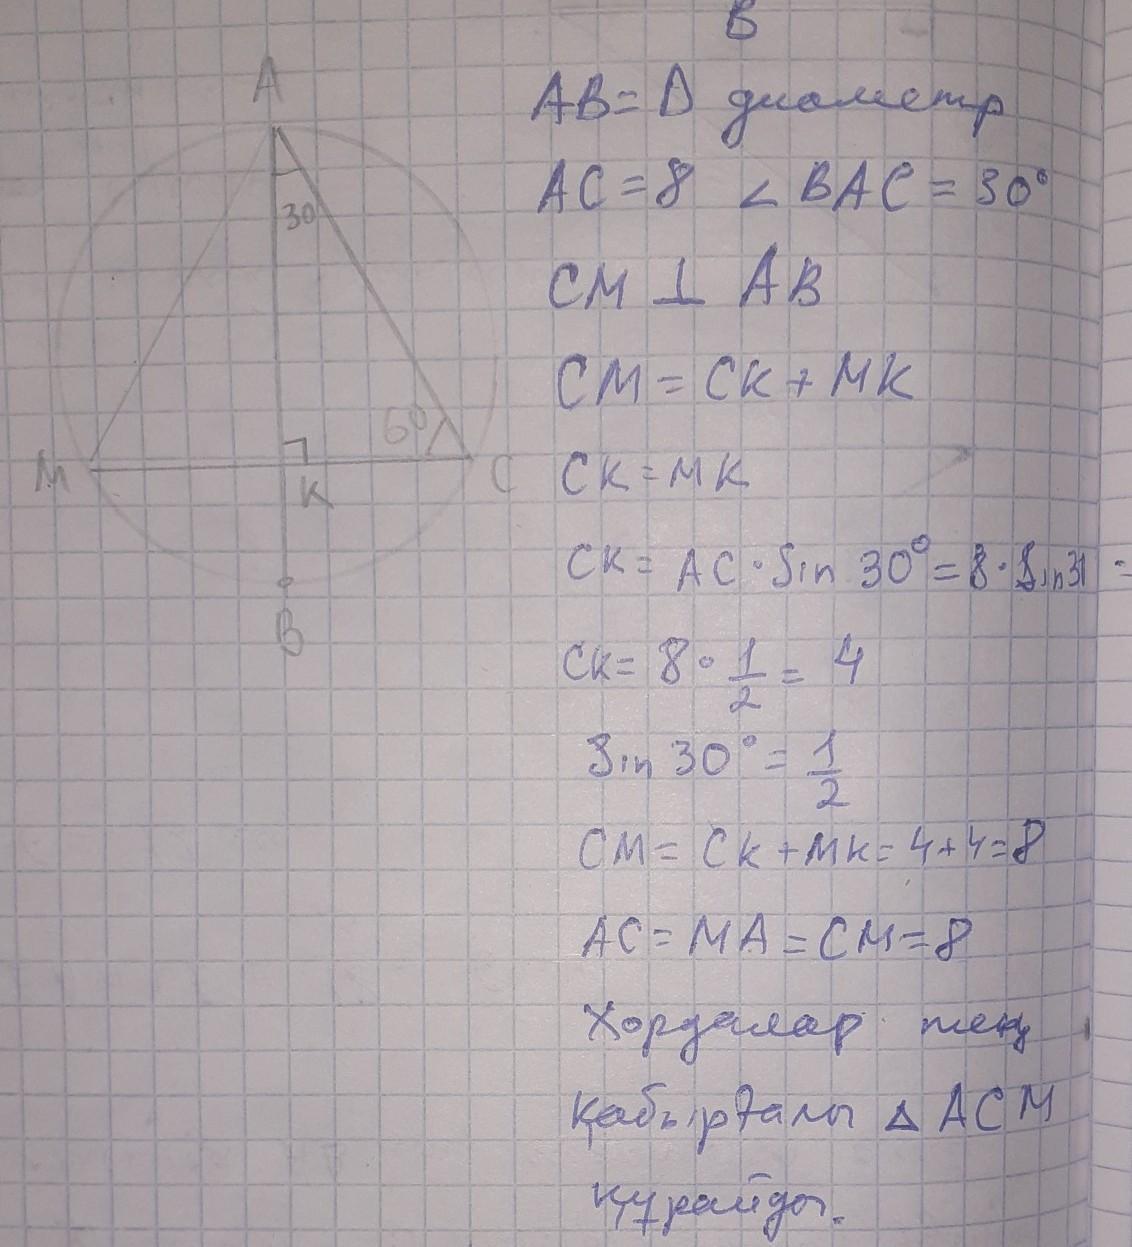 В
A
30
60
M
K
C
B
AB = D диаметр
AC = 8 ∠BAC = 30°
CM ⊥ AB
CM = CK + MK
CK = MK
CK = AC · Sin 30° = 8 · Sin 30 =
CK = 8 · 1/2 = 4
Sin 30° = 1/2
CM = CK + MK = 4 + 4 = 8
AC = MA = CM = 8
Хордалар тең
қабырғалы Δ ACM
құрайды.